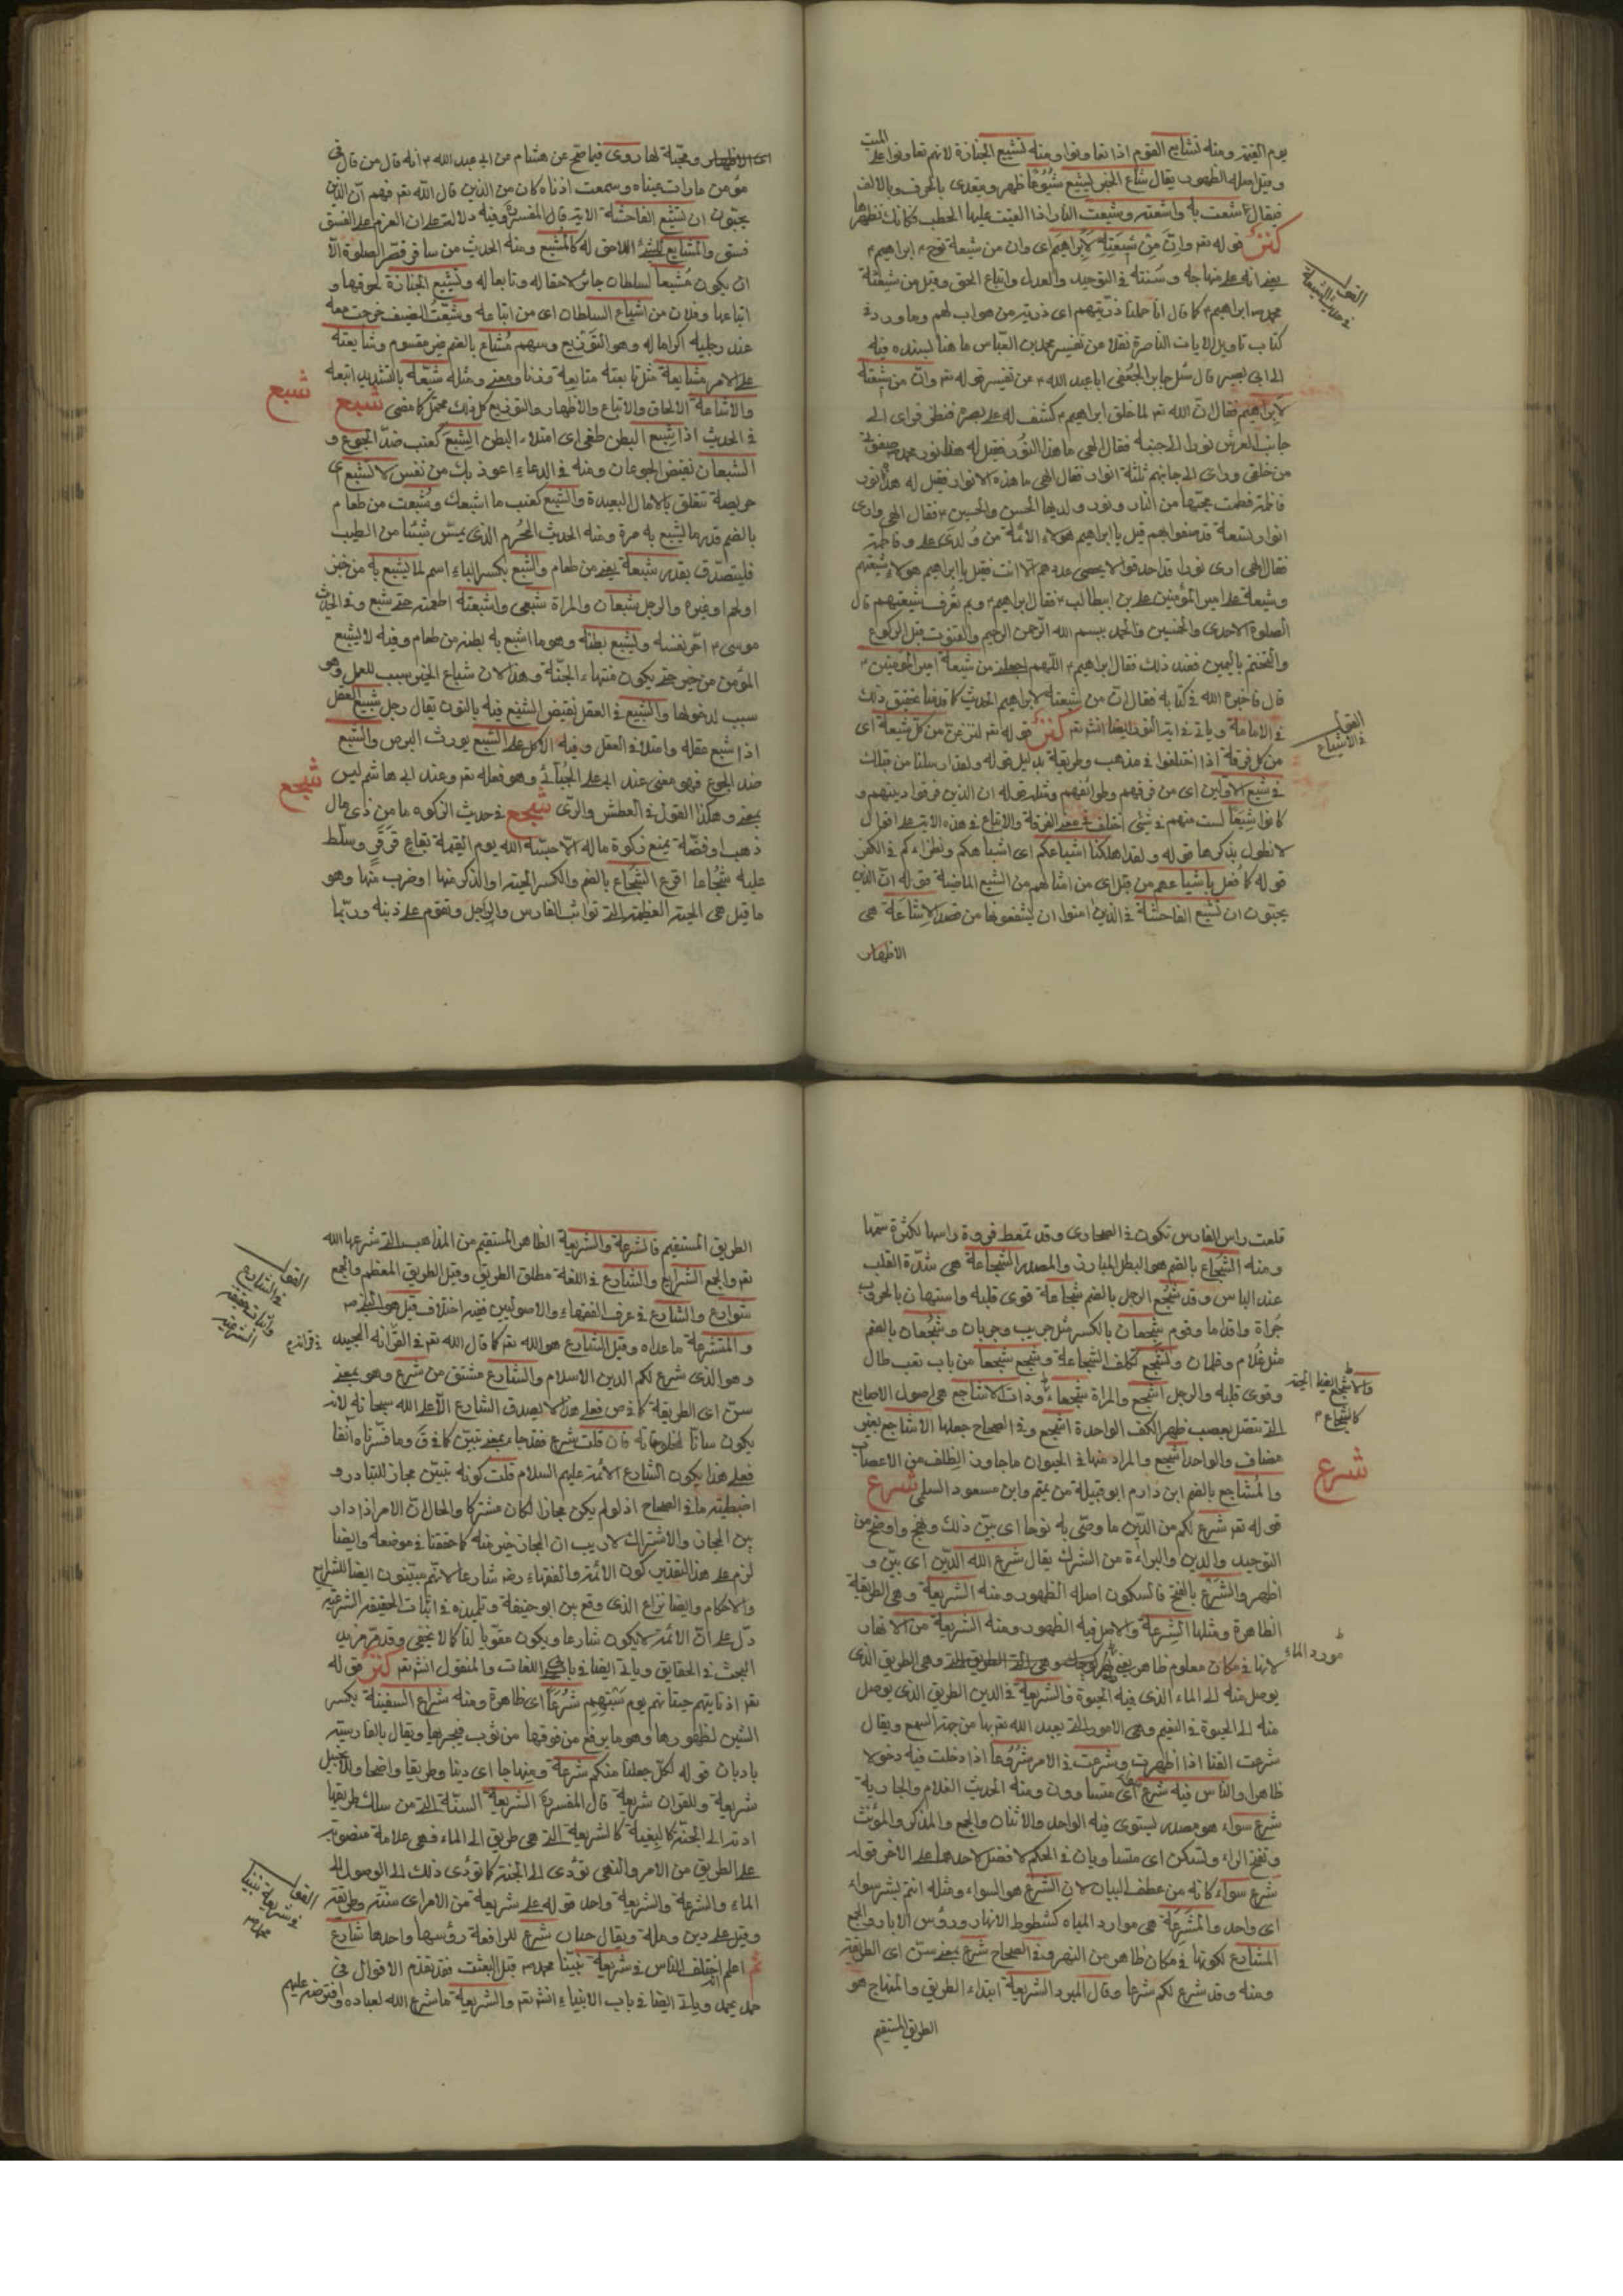 يوم القيمة ومنه تشايع القوم اذا تعاونوا ومنه تشييع الجنازة لانهم تعاونوا على الميت
وقيل اصله الظهور يقال شاع الخبر يشيع شيوعا ظهر ويتعدى بالحرف وبالالف
فيقال شعت به واشعته وشيعت النار اذا القيت عليها الحطب فكانك تظهرها
كنز قوله تعر وان من شيعته لابراهيم اى وان من شيعة نوح ابراهيم
يعنى انه على منهاجه وسنته فى التوحيد والعدل واتباع الحق وقيل من شيعة
محمد ابراهيم كما قال انا حملنا ذريتهم اى ذرية من هو اب لهم وما ورد فى
كتاب تاويل الايات الناصرة نقلا عن تفسير محمد بن العباس ما هنا لسنده فيه
الى ابى بصير قال سئل جابر الجعفى ابا عبد الله عن تفسير قوله تعر وان من شيعته
لابراهيم فقال ان الله تعر لما خلق ابراهيم كشف له على بصره فنظر فراى الى
جانب العرش نورا الى جنبه فقال الهى ما هذا النور فقيل له هذا نور محمد صفوتى
من خلقى وراى الى جانبهم ثلثة انوار فقال الهى ما هذه الانوار فقيل له هذا نور
فاطمة فطمت محبيها من النار ونور ولديها الحسن والحسين فقال الهى وارى
انوار تسعة قد صفوا بهم قيل يا ابراهيم هؤلاء الائمة من ولدى على وفاطمة
فقال الهى ارى نورا قد احدقوا لا يحصى عددهم الا انت فقيل يا ابراهيم هؤلاء شيعتهم
وشيعة على امير المؤمنين على بن ابيطالب فقال ابراهيم وبم تعرف شيعتهم قال
الصلوة الاحدى والخمسين والجهر ببسم الله الرحمن الرحيم والقنوت قبل الركوع
والتختم باليمين فعند ذلك فقال ابراهيم اللهم اجعلنى من شيعة امير المؤمنين
قال فاخبر الله فى كتابه فقال ان من شيعته لابراهيم الحديث كما قدمنا تحقيق ذلك
كنز قوله تعر لننزعن من كل شيعة اى
من كل فرقة اذا اختلفوا فى مذهب وطريقة بدليل قوله ولقد ارسلنا من قبلك
فى شيع الاولين اى من فرقهم وطوائفهم ومثله قوله ان الذين فرقوا دينهم و
كانوا شيعا لست منهم فى شئ اختلف فى معنى الفرقة والاتباع فى هذه الاية على اقوال
لا نطول بذكرها قوله ولقد اهلكنا اشياعكم اى اشباهكم ونظراءكم فى الكفر
قوله كما فعل باشياعهم من قبل اى من امثالهم من الشيع الماضية قوله ان الذين
يحبون ان تشيع الفاحشة فى الذين امنوا ان يشفعونها من قصد الاشاعة هى
الاظهار
اى الاظهار ومحبة لها روى فيما صح عن هشام عن ابى عبد الله انه قال من قال فى
مؤمن ما رات عيناه وسمعت اذناه كان من الذين قال الله تعر فيهم ان الذين
يحبون ان تشيع الفاحشة الاية قال المفسر وفيه دلالة على ان العزم على الفسق
فسق والمشايع للشئ اللاحق له كالمشيع ومنه الحديث من سافر قصر الصلوة الا
ان يكون مشيعا لسلطان جائر لاحقا له وتابعا له وتشييع الجنازة لحوقها و
اتباعها وفلان من اشياع السلطان اى من اتباعه وشيعت الضيف خرجت معه
عند رحيله اكراما له وهو التوديع وسهم مشاع بالضم غير مقسوم وشايعته
على الامر مشايعة مثل تابعته متابعة وزنا ومعنى ومثله شيعه بالتشديد اتبعه
والاشاعة الالحاق والاتباع والاظهار والتوزيع كل ذلك محتمل كما مضى شبع
شبع
فى الحديث اذا شبع البطن طغى اى امتلاء البطن الشبع كعنب ضد الجوع و
الشبعان نقيض الجوعان ومنه فى الدعاء اعوذ بك من نفس لا تشبع اى
حريصة تتعلق بالامال البعيدة والشبع كعنب ما اشبعك وشبعت من طعام
بالضم قدر ما يشبع به مرة ومنه الحديث المحرم الذى يمس شيئا من الطيب
فليتصدق بقدر شبعة يعنى من طعام والشبع بكسر الباء اسم لما يشبع به من خبز
او لحم او غيره والرجل شبعان والمراة شبعى واشبعته اطعمته حتى شبع وفى الحديث
موسى اجر نفسه بشبع بطنه وهو ما اشبع به بطنه من طعام وفيه لا يشبع
المؤمن من خير حتى يكون منتهاه الجنة وهذا لان شباع الخير سبب للعمل وهو
سبب لدخولها والشبيع فى العقل نقيض الشنيع فيه بالنون يقال رجل شبيع العقل
اذا شبع عقله وامتلا فى العقل وفيه الاكل على الشبع يورث البرص والشبع
ضد الجوع فهو معنى عند ابى على الجبائى وهو فعله تعر وعند ابى هاشم ليس
بمعنى وهكذا القول فى العطش والرى شجع فى حديث الزكوة ما من ذى مال
شجع
ذهب او فضة يمنع زكوة ماله الا حبسه الله يوم القيمة بقاع قرقر وسلط
عليه شجاعا اقرع الشجاع بالضم والكسر الحية او الذكر منها او ضرب منها وهو
ما قيل هى الحية العظيمة التى تواثب الفارس والراجل وتقوم على ذنبه وربما
قلعت راس الفارس تكون فى الصحارى وقد تمعط فروة راسها لكثرة سمها
ومنه الشجاع بالضم هو البطل المبارز والمصدر الشجاعة هى شدة القلب
عند الباس وقد شجع الرجل بالضم شجاعة قوى قلبه واستهان بالحروب
جراة واقداما وقوم شجعان بالكسر مثل جريب وجربان وشجعان بالضم
مثل غلام وغلمان وتشجع تكلف الشجاعة وشجع شجعا من باب تعب طال
وقوى قلبه والرجل اشجع والمراة شجعاء وذات الاشاجع هى اصول الاصابع
التى تتصل بعصب ظهر الكف الواحدة اشجع وفى الصحاح جعلها الاشاجع بغير
مضاف والواحد اشجع والمراد منها فى الحيوان ما جاوز الظلف من الاعصاب
والاشجع ايضا الحية
كالشجاع
شرع
والمشاجع بالضم ابن دارم ابو قبيلة من تميم وابن مسعود السلمى شرع
قوله تعر شرع لكم من الدين ما وصى به نوحا اى بين ذلك ونهج واوضح من
التوحيد والدين والبراءة من الشرك يقال شرع الله الدين اى بين و
اظهر والشرع بالفتح فالسكون اصله الظهور ومنه الشريعة وهى الطريقة
الظاهرة ومثلها الشرعة والاصل فيه الظهور ومنه الشريعة من الانهار
مورد الماء
لانها فى مكان معلوم ظاهر وهى الطريق الذى
يوصل منه الى الماء الذى فيه الحيوة فالشريعة فى الدين الطريق الذى يوصل
منه الى الحيوة فى النعيم وهى الامور التى يعبد الله تعر بها من جهة السمع ويقال
شرعت القنا اذا اظهرت وشرعت فى الامر شروعا اذا دخلت فيه دخولا
ظاهرا والناس فيه شرع اى متساوون ومنه الحديث الغلام والجارية
شرع سواء هو مصدر يستوى فيه الواحد والاثنان والجمع والمذكر والمؤنث
وتفتح الراء وتسكن اى متساويان فى الحكم لا فضل لاحدهما على الاخر قوله
شرع سواء كانه من عطف البيان لان الشرع هو السواء ومثله انتم بشر سواء
اى واحد والمشرعة هى موارد المياه كشطوط الانهار ورؤس الابار والجمع
المشارع لكونها فى مكان ظاهر من النهر وفى الصحاح شرع بمعنى سن اى الطريقة
ومنه وقد شرع لكم شرعا وقال المبرد الشريعة ابتداء الطريق والمنهاج هو
الطريق المستقيم
الطريق المستقيم فالشرعة والشريعة الظاهر المستقيم من المذاهب التى شرعها الله
تعر والجمع الشرايع والشارع فى اللغة مطلق الطريق وقيل الطريق المعظم والجمع
شوارع والشارع فى عرف الفقهاء والاصوليين فيه اختلاف قيل هو النبى
والمتشرعة ما عداه وقيل الشارع هو الله تعر كما قال الله تعر فى القرانه المجيد
وهو الذى شرع لكم الدين الاسلام والشارع مشتق من شرع وهو بمعنى
سن اى الطريقة كما فى ص فعلى هذا لا يصدق الشارع الا على الله سبحانه لانه
يكون سانا فان قلت شرع فقد جاء بمعنى تبين كما فى ق وما فسرناه آنفا
فعلى هذا يكون الشارع الائمة عليهم السلام قلت كونه تبيين مجاز للتبادر و
اضبطيته ما فى الصحاح اذ لو لم يكن مجازا لكان مشتركا والحال ان الامر اذا دار
بين المجاز والاشتراك لا ريب ان المجاز خير منه كما حققنا فى موضعه وايضا
لزم على هذا التقدير كون الائمة والفقهاء شارعا لانهم مبينون ايضا للشرايع
والاحكام وايضا نزاع الذى وقع بين ابو حنيفة وتلميذه فى اثبات الحقيقة الشرعية
دل على ان الائمة لا يكون شارعا ويكون مقويا لنا كما لا يخفى وقد مر مزيد
البحث فى الحقايق وياتى ايضا فى باب اللغات والمنقول انشر تعر كنز قوله
تعر اذ تاتيهم حيتانهم يوم سبتهم شرعا اى ظاهرة ومنه شراع السفينة بكسر
الشين لظهورها وهو ما يرفع من فوقها من ثوب فيجريها ويقال بالفارسية
بادبان قوله لكل جعلنا منكم شرعة ومنهاجا اى دينا وطريقا واضحا وللانجيل
شريعة وللقران شريعة قال المفسر الشريعة السنة التى من سلك طريقها
ادته الى الجنة كالبغية كالشريعة التى هى طريق الى الماء فهى علامة منصوبة
على الطريق من الامر والنهى تؤدى الى الجنة كما تؤدى ذلك الى الوصول الى
الماء والشرعة والشريعة واحد قوله على شريعة من الامر اى سنة وطريقة
وقيل على دين وملة ويقال حيتان شرع للرافعة رؤسها واحدها شارع
ثم اعلم اختلف الناس فى شريعة نبينا محمد قبل البعثت فقد تقدم الاقوال فى
حمد يحمد وياتى ايضا فى باب الانبياء انشر تعر والشريعة ما شرع الله لعباده وافترضه عليهم